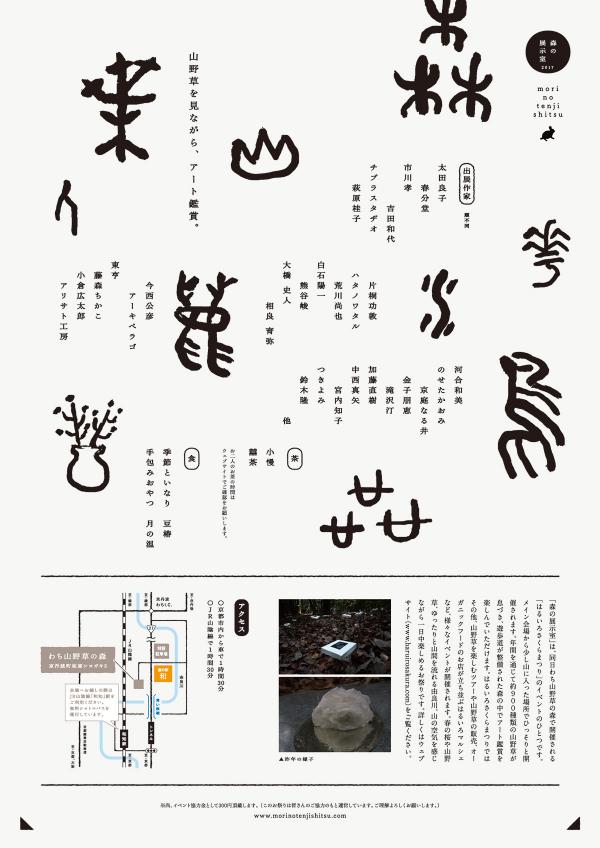 森の
展示室
2017
mori
no
tenji
shitsu
山野草を見ながら、アート鑑賞。
出展作家
順不同
太田良子
春分堂
市川孝
吉田和代
チプラスタヂオ
萩原桂子
片桐功敦
ハタノワタル
荒川尚也
白石陽一
熊谷峻
大橋 史人
相良 育弥
今西公彦
アーキペラゴ
東亨
藤森ちかこ
小倉広太郎
アリサト工房
河合和美
のせたかおみ
京庭なる井
金子朋恵
滝沢汀
加藤直樹
中西真矢
宮内知子
つきよみ
鈴木隆
他
茶
小慢
お二人のお茶の時間は
ウェブサイトでご確認をお願いします。
食
季節といなり 豆椿
手包みおやつ 月の温
「森の展示室」は、同日わち山野草の森で開催される
「はるいろさくらまつり」のイベントのひとつです。
メイン会場から少し山に入った場所でひっそりと開
催されます。年間を通じて約900種類の山野草が
息づき、遊歩道が整備された森の中でアート鑑賞を
楽しんでいただけます。はるいろさくらまつりでは
その他、山野草を楽しむツアーや山野草の販売、オー
ガニックフードのお店が立ち並ぶはるいろマルシェ
など、様々なイベントが開催されます。春の桜や山野
草、ゆったりと山間を流れる由良川、山の空気を感じ
ながら一日中楽しめるお祭りです。詳しくはウェブ
サイト(www.haruirosakura.com)をご覧ください。
▲昨年の様子
アクセス
○京都市内から車で1時間30分
○JR山陰線で1時間30分
京丹波
わちI.C.
JR山陰線
わち山野草の森
京丹波町坂原シヨガキ5
和
和知駅
会場へお越しの際は
JR山陰線「和知」駅を
ご利用ください。
無料シャトルバスを
運行しています。
※尚、イベント協力金として300円頂戴します。(このお祭りは皆さんのご協力のもと運営しています。ご理解よろしくお願いします。)
www.morinotenjishitsu.com